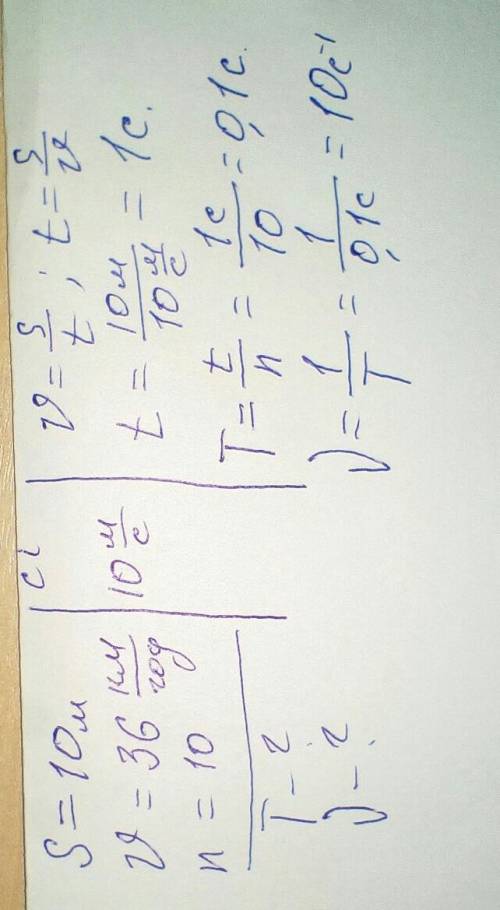 S = 10м
𝜗 = 36 км/год
n = 10
T - ?
ν - ?
СІ
10 м/с
𝜗 = S/t ; t = S/𝜗
t = 10м / 10 м/с = 1с.
T = t/n = 1с/10 = 0,1с.
ν = 1/T = 1/0,1с = 10с⁻¹